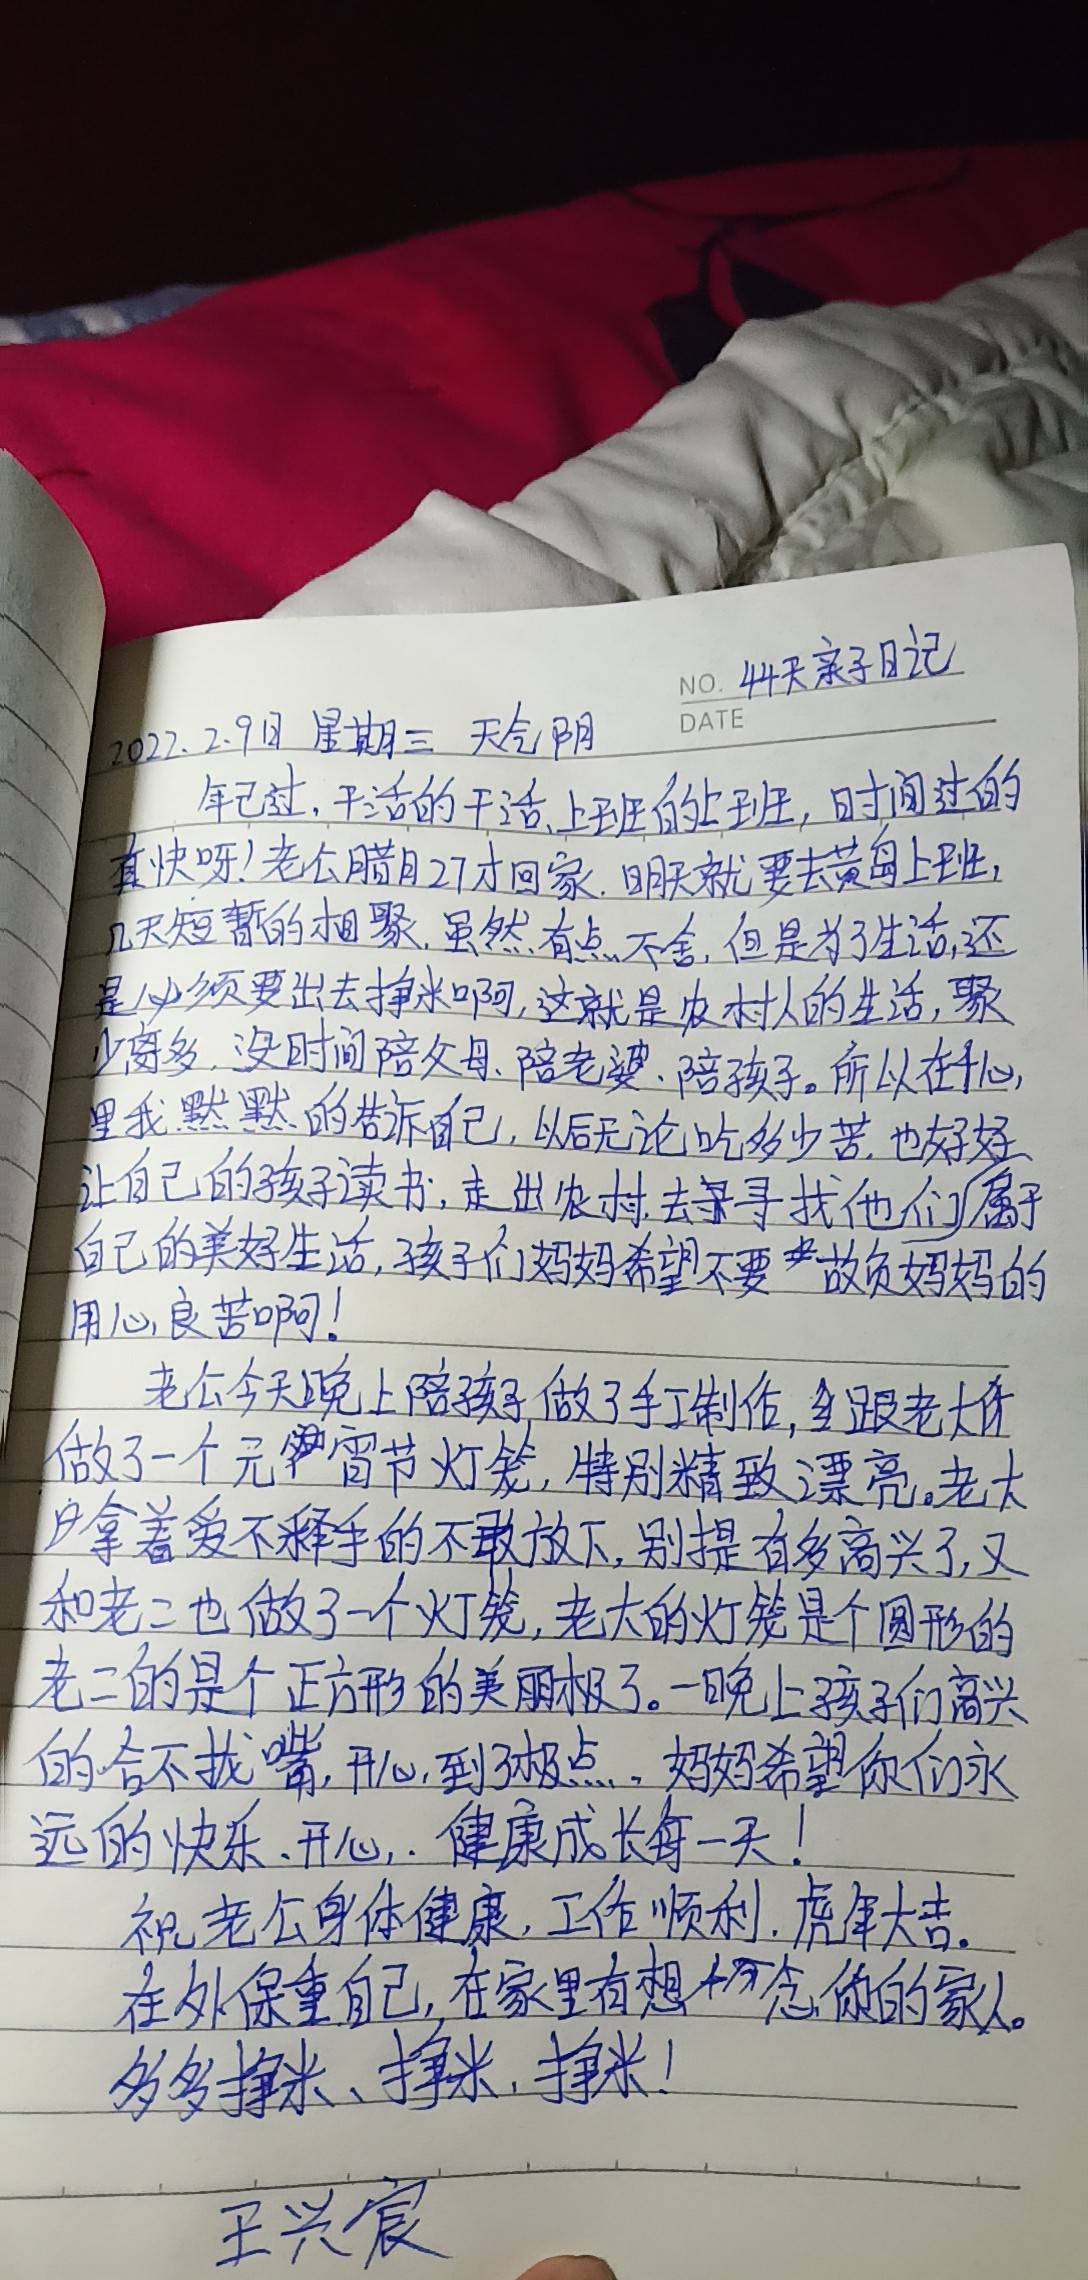 NO. 44天亲子日记
DATE
2022.2.9日 星期三 天气阴
年已过,干活的干活、上班的上班,时间过的
真快呀!老公腊月27才回家.明天就要去黄岛上班,
几天短暂的相聚.虽然有点不舍,但是为了生活,还
是必须要出去挣米啊,这就是农村人的生活,聚
少离多,没时间陪父母、陪老婆、陪孩子。所以在心
里我默默的告诉自己,以后无论吃多少苦.也好好
让自己的孩子读书,走出农村.去寻找他们属于
自己的美好生活,孩子们妈妈希望不要故负妈妈的
用心良苦啊!
老公今天晚上陪孩子做了手工制作,跟老大
做了一个元宵节灯笼,特别精致漂亮。老大
拿着爱不释手的不敢放下,别提有多高兴了,又
和老二也做了一个灯笼,老大的灯笼是个圆形的
老二的是个正方形的美丽极了。一晚上孩子们高兴
的合不拢嘴,开心到了极点.妈妈希望你们永
远的快乐、开心.健康成长每一天!
祝老公身体健康,工作顺利.虎年大吉。
在外保重自己,在家里有想念你的家人。
多多挣米、挣米,挣米!
王兴宸